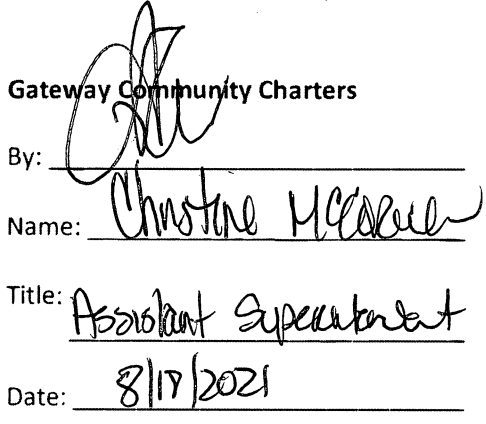 Gateway Community Charters
By:
Name: Christine
Title: Assistant Superintendent
Date: 8/18/2021